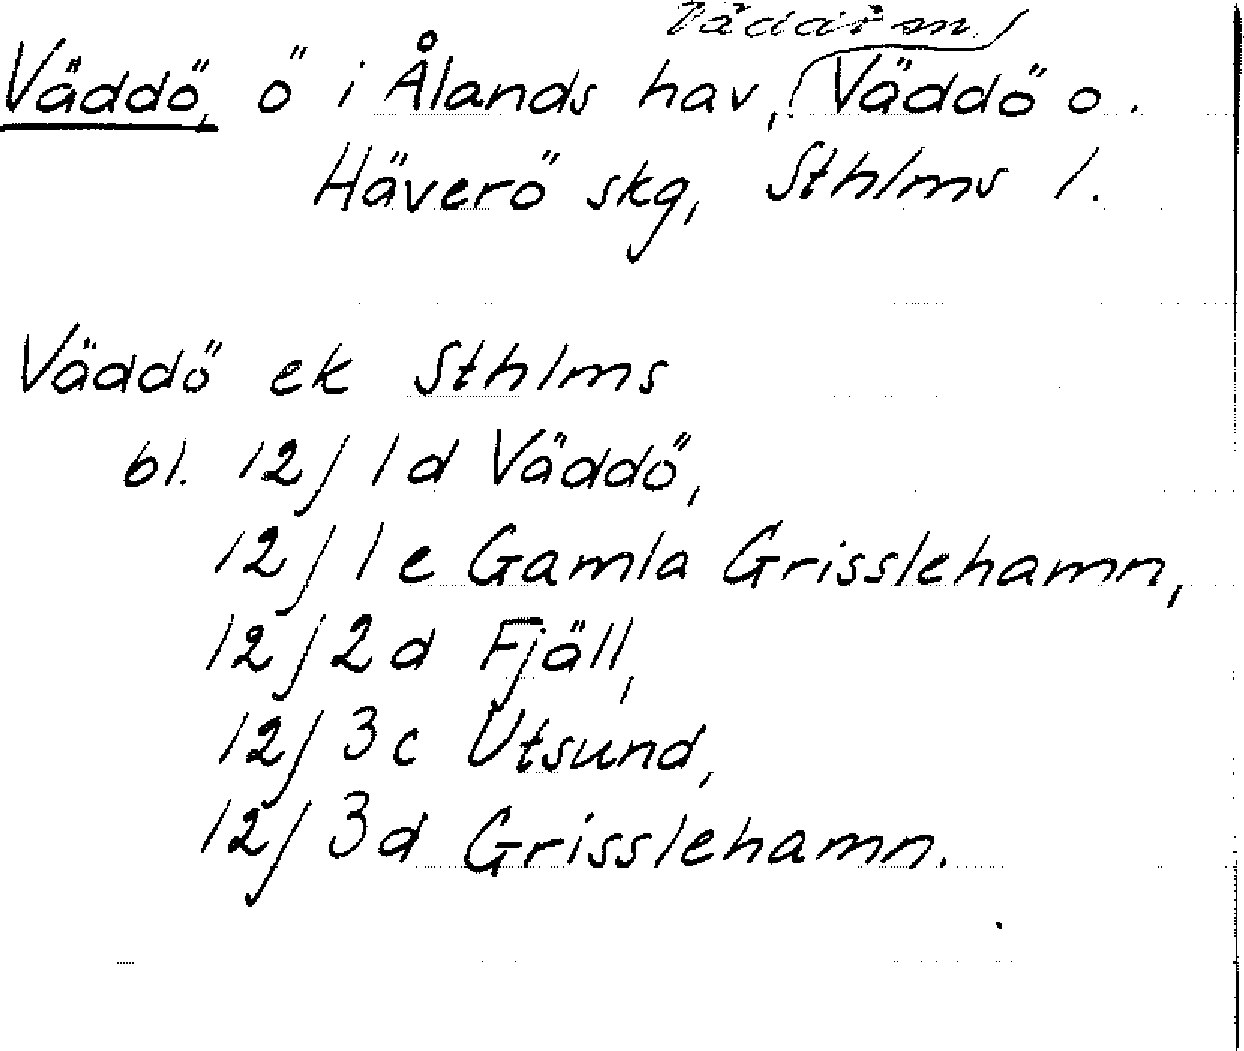 Väddö, ö i Ålands hav, Väddö o.
Häverö skg, Sthlms l.
Väddö ek Sthlms
bl. 12j 1d Väddö,
12j 1e Gamla Grisslehamn,
12j 2d Fjäll,
12j 3c Utsund,
12j 3d Grisslehamn.